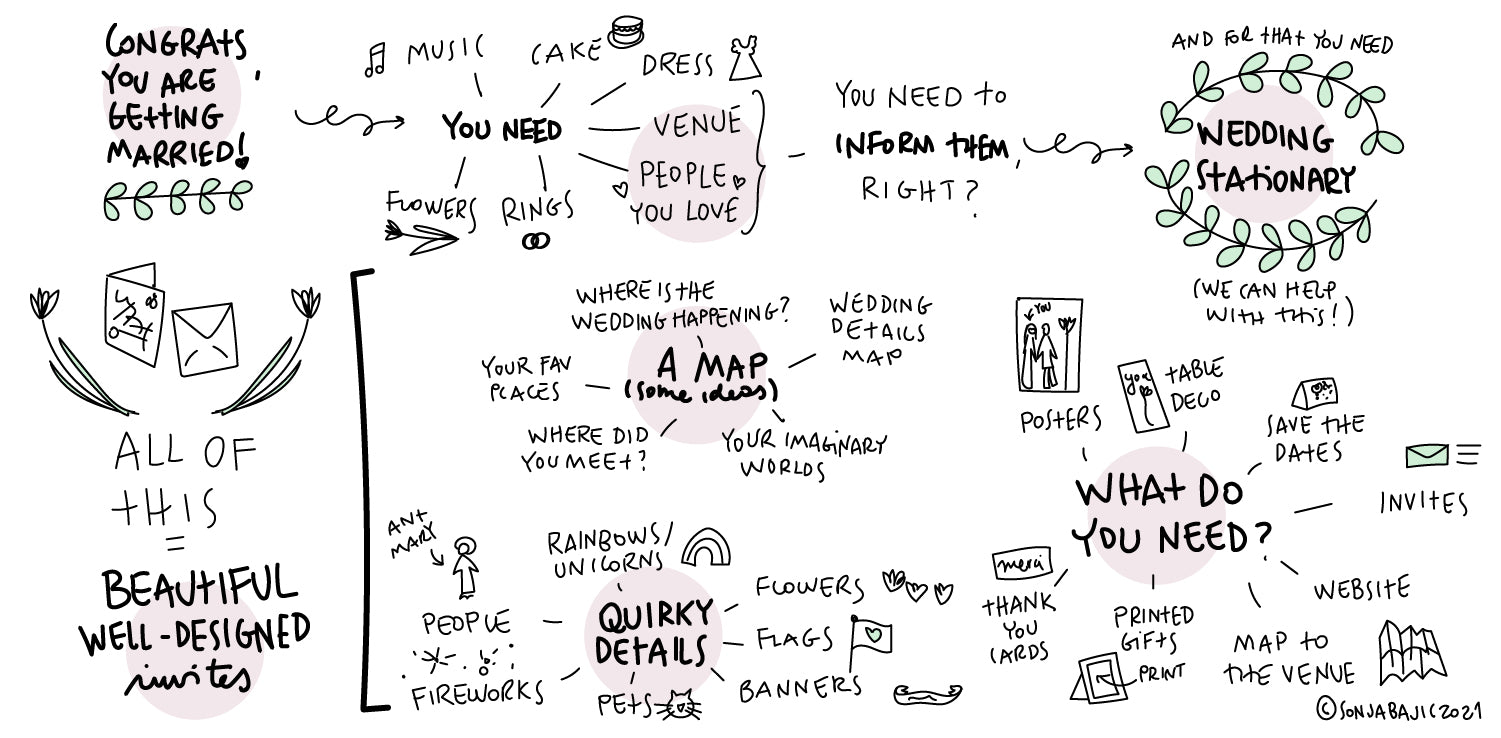 CONGRATS
YOU ARE
GETTING
MARRIED!
MUSIC
CAKE
DRESS
YOU NEED
VENUE
PEOPLE
YOU LOVE
FLOWERS
RINGS
YOU NEED to
INFORM THEM,
RIGHT?
AND FOR THAT YOU NEED
WEDDING
STATIONARY
(WE CAN HELP
WITH THIS!)
POSTERS
YOU
you
TABLE
DECO
SAVE THE
DATES
INVITES
WHAT DO
YOU NEED?
WEBSITE
MAP TO
THE VENUE
PRINTED
GIFTS
PRINT
merci
THANK
YOU
CARDS
WHERE IS THE
WEDDING HAPPENING?
WEDDING
DETAILS
MAP
YOUR FAV
PLACES
A MAP
(some ideas)
WHERE DID
YOU MEET?
YOUR IMAGINARY
WORLDS
ANT
MARY
PEOPLE
RAINBOWS/
UNICORNS
FLOWERS
QUIRKY
DETAILS
FLAGS
BANNERS
FIREWORKS
PETS
ALL OF
THIS
=
BEAUTIFUL
WELL-DESIGNED
invites
©SONJABAJIC2021